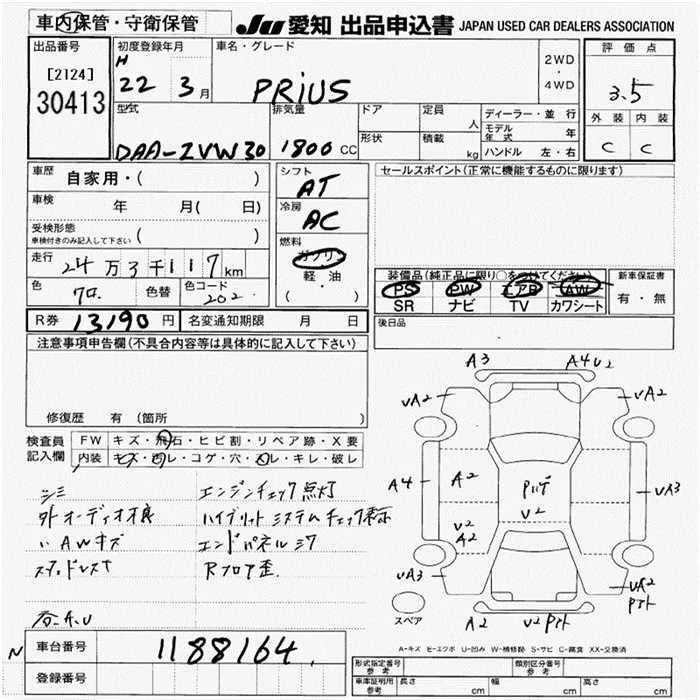 車内保管・守衛保管
JU 愛知 出品申込書 JAPAN USED CAR DEALERS ASSOCIATION
出品番号
[2124]
30413
初度登録年月
H
22 3月
車名・グレード
PRIUS
2WD
・
4WD
評価点
3.5
外装 内装
C C
型式
DAA-ZVW30
排気量
1800 CC
ドア
形状
定員
人
積載
kg
ディーラー・並 行
モデル年式 年
ハンドル 左・右
車歴
自家用・( )
車検
年 月( 日)
受検形態
車検付きのみ記入して下さい ( )
走行
24万3千117km
色
クロ
色替
色コード
202
シフト
AT
冷房
AC
燃料
ガソリン
軽 油
( ・ )
セールスポイント(正常に機能するものに限ります)
装備品(純正品に限り○をつけてください)
PS PW エアB AW
SR ナビ TV カワシート
新車保証書
有・無
R券 13190 円
名変通知期限 月 日
後日品
注意事項申告欄(不具合内容等は具体的に記入して下さい)
修復歴 有 (箇所 )
検査員
記入欄
FW キズ・飛石・ヒビ割・リペア跡・X要
内装 キズ・汚レ・コゲ・穴・スレ・キレ・破レ
シミ
外オーディオ良
ハ AWキズ
スタッドレス
エンジンチェック点灯
ハイブリットシステムチェック表示
エンドパネルシワ
Rフロア歪
各A.U
A3
A4U2
UA2
UA2
A4
A2
U2
A2
U2
UA3
UA3
UA2
A2
U2
スペア
A-キズ E-エクボ U-凹み W-補修跡 S-サビ C-腐食 XX-交換済
N 車台番号 1188164
登録番号
形式指定番号
参 考
類別区分番号
参 考
車庫証明用
参 考
長さ cm
幅 cm
高さ cm